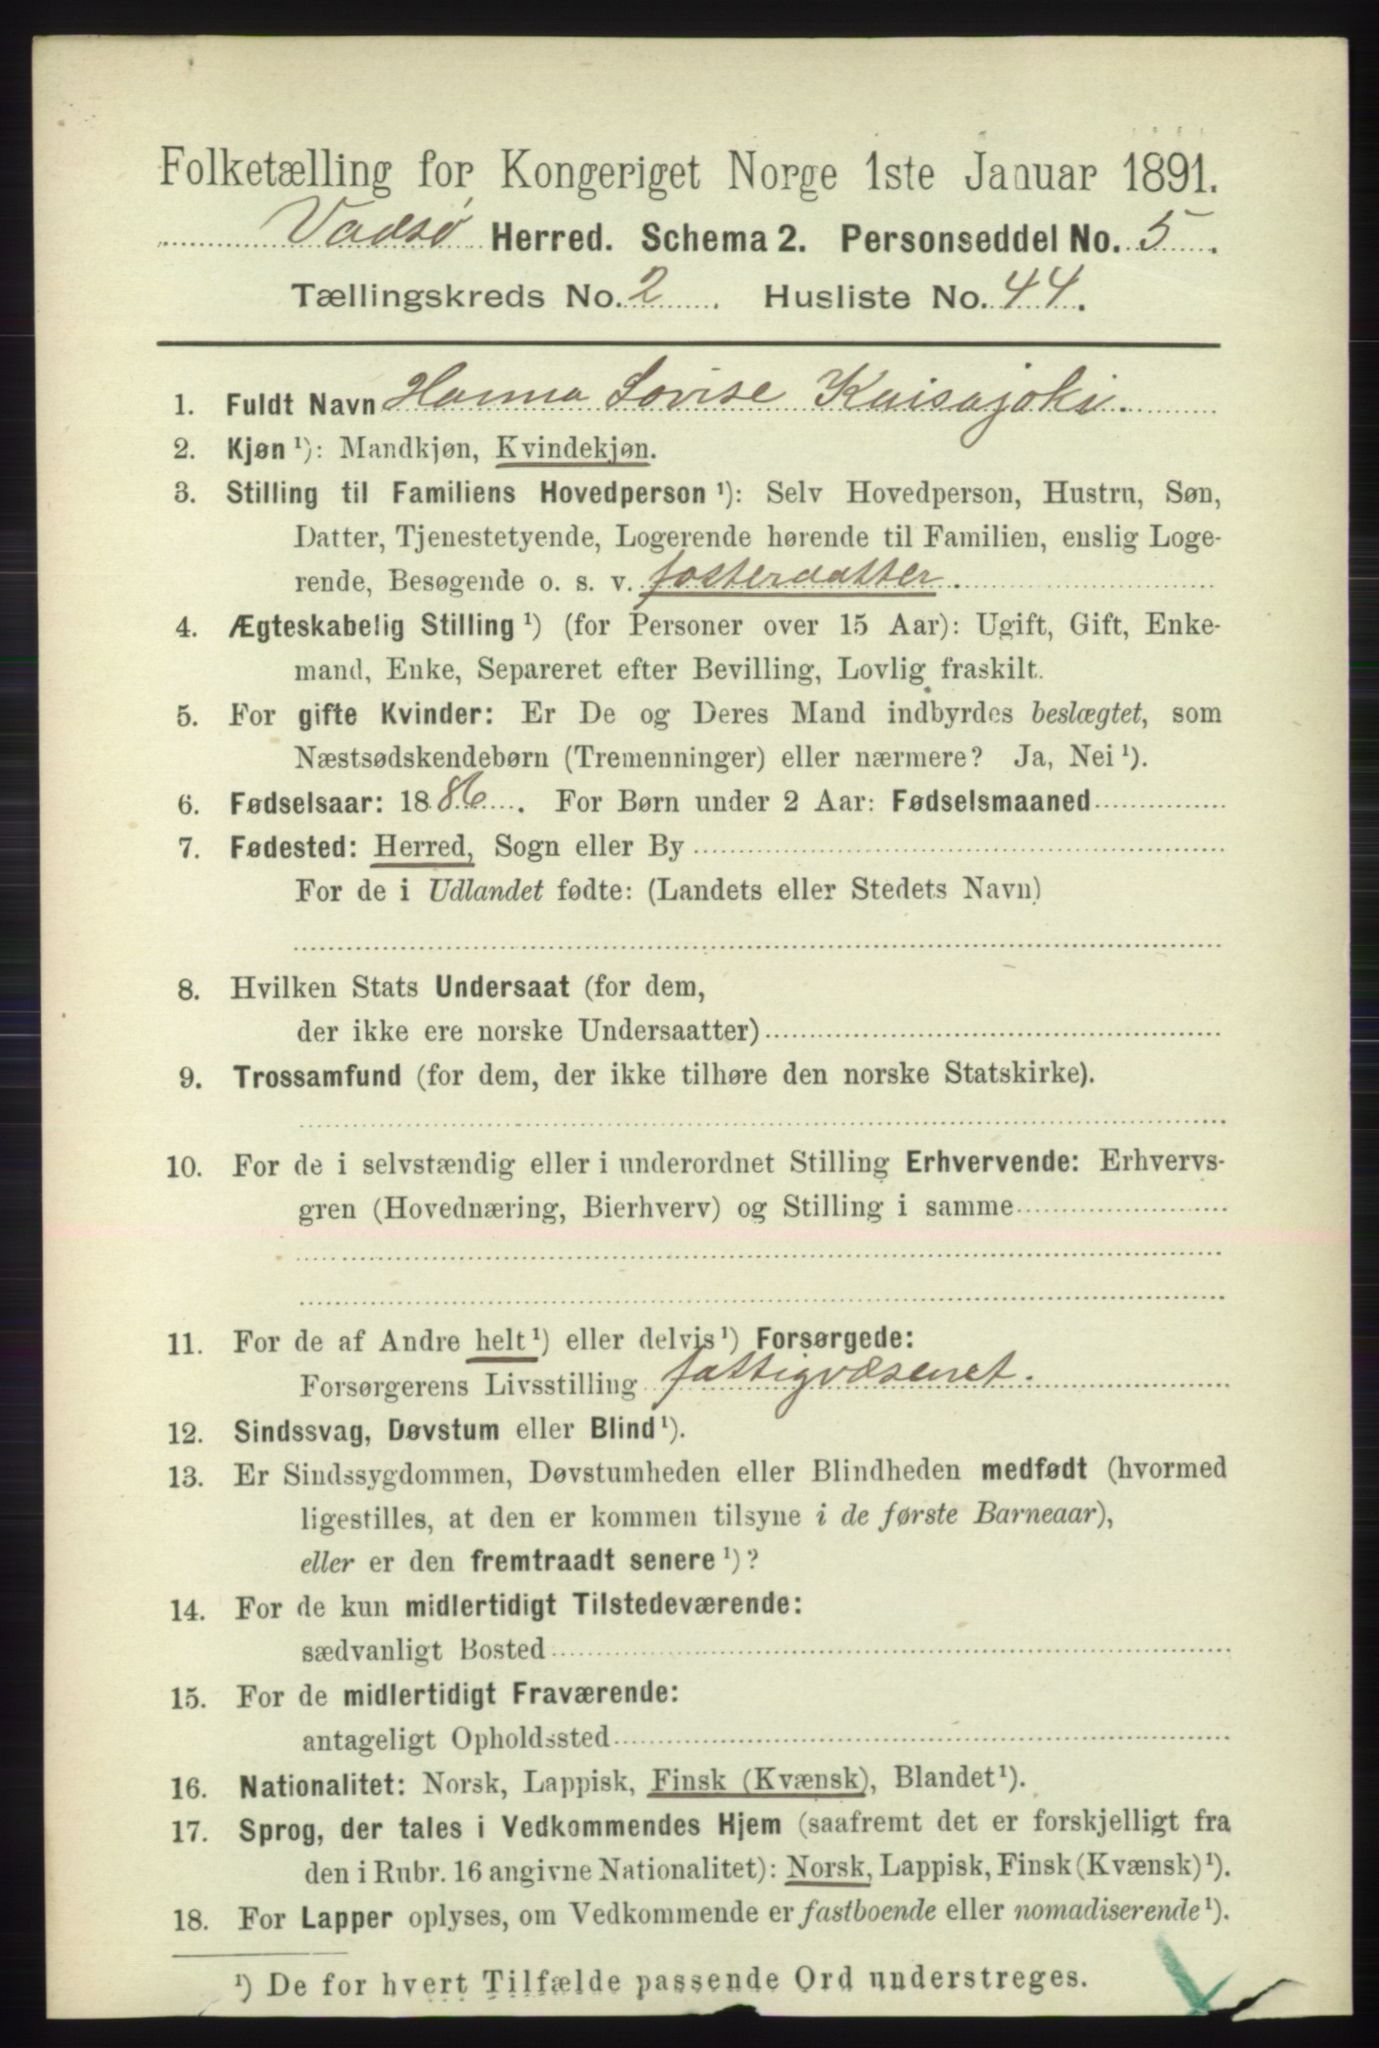 Folketælling for Kongeriget Norge 1ste Januar 1891.
Vadsø Herred. Schema 2. Personseddel No. 5.
Tællingskreds No. 2. Husliste No. 44.
1. Fuldt Navn Hanna Lovise Kaisajoki.
2. Kjøn ¹): Mandkjøn, Kvindekjøn.
3. Stilling til Familiens Hovedperson ¹): Selv Hovedperson, Hustru, Søn,
Datter, Tjenestetyende, Logerende hørende til Familien, enslig Loge-
rende, Besøgende o. s. v. fosterdatter.
4. Ægteskabelig Stilling ¹) (for Personer over 15 Aar): Ugift, Gift, Enke-
mand, Enke, Separeret efter Bevilling, Lovlig fraskilt.
5. For gifte Kvinder: Er De og Deres Mand indbyrdes beslægtet, som
Næstsødskendebørn (Tremenninger) eller nærmere? Ja, Nei ¹).
6. Fødselsaar: 1886. For Børn under 2 Aar: Fødselsmaaned
7. Fødested: Herred, Sogn eller By
For de i Udlandet fødte: (Landets eller Stedets Navn)
8. Hvilken Stats Undersaat (for dem,
der ikke ere norske Undersaatter)
9. Trossamfund (for dem, der ikke tilhøre den norske Statskirke).
10. For de i selvstændig eller i underordnet Stilling Erhvervende: Erhvervs-
gren (Hovednæring, Bierhverv) og Stilling i samme
11. For de af Andre helt ¹) eller delvis ¹) Forsørgede:
Forsørgerens Livsstilling fattigvæsenet.
12. Sindssvag, Døvstum eller Blind ¹).
13. Er Sindssygdommen, Døvstumheden eller Blindheden medfødt (hvormed
ligestilles, at den er kommen tilsyne i de første Barneaar),
eller er den fremtraadt senere ¹)?
14. For de kun midlertidigt Tilstedeværende:
sædvanligt Bosted
15. For de midlertidigt Fraværende:
antageligt Opholdssted
16. Nationalitet: Norsk, Lappisk, Finsk (Kvænsk), Blandet ¹).
17. Sprog, der tales i Vedkommendes Hjem (saafremt det er forskjelligt fra
den i Rubr. 16 angivne Nationalitet): Norsk, Lappisk, Finsk (Kvænsk) ¹).
18. For Lapper oplyses, om Vedkommende er fastboende eller nomadiserende ¹).
¹) De for hvert Tilfælde passende Ord understreges.